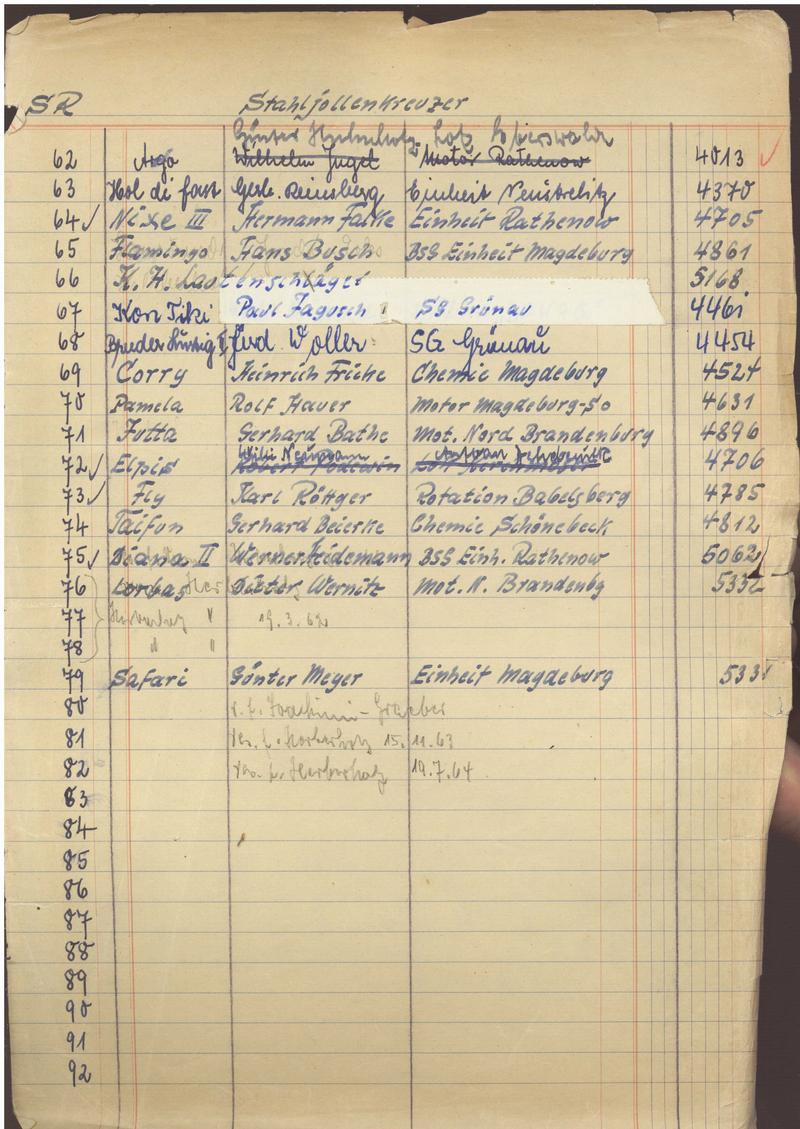 SR Stahljollenkreuzer
Günter
62 Argo Wilhelm Motor Rathenow 4013
63 Hol di fast Gerh. Reinsberg Einheit Neustrelitz 4370
64 ✓ Nixe III Hermann Falke Einheit Rathenow 4705
65 Flamingo Hans Busch BSG Einheit Magdeburg 4861
66 K. H. Lautenschläger 5168
67 Kon Tiki Paul Jagusch SG Grünau 4461
68 Gerd Woller SG Grünau 4454
69 Corry Heinrich Fricke Chemie Magdeburg 4524
70 Pamela Rolf Hauer Motor Magdeburg-So 4631
71 Jutta Gerhard Bathe Mot. Nord Brandenburg 4896
Willi Neumann
72 ✓ Elpis 4706
73 ✓ Fly Karl Röttger Rotation Babelsberg 4785
74 Taifun Gerhard Beierke Chemie Schönebeck 4812
75 ✓ Diana II Werner Heidemann BSG Einh. Rathenow 5062
76 Lorbas Dieter Wernitz Mot. N. Brandenbg 5332
77 " 19.3.62
78 " "
79 Safari Günter Meyer Einheit Magdeburg 5331
80 Joachim - Graeber
81 res. f. 15. 11.63
82 res. f. 19.7.64
83
84
85
86
87
88
89
90
91
92